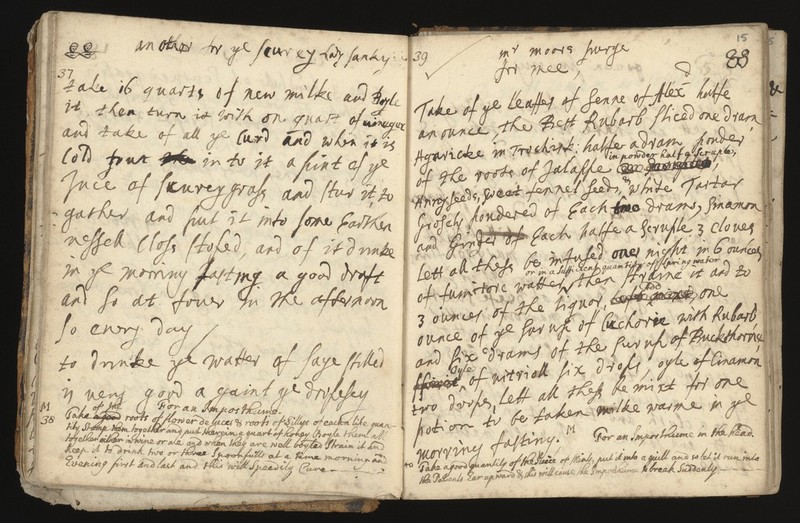 another for ye scurvey Lady Sanky
37
take 16 quarts of new milke and Boyle
it then turn it with on quart of vineger
and take of all ye Curd and when it is
Cold put in to it a pint of ye
Juce of Scurveygrass and stur it to
gather and put it into some Earthen
vessell Closs stoped and of it drinke
in ye morning fasting a good draft
and so at fower in the afternoon
so every day
to drinke ye watter of sage stilled
is very good a gaint ye dropesey
M
38
For an Imposthume.
Take of the roots of flower de luces & roots of Lillys of each a like quan
tity Stamp them together and put therein a quart of honey Boyle them all
together ether in wine or ale and when they are well boyled strain it and
keep it to drink two or three spoonfulls at a time morning and
Evening first and last and this will speadily Cure
15
39
mr moors purge
for mee,
Take of ye leaffes of Senne of Alex halfe
an ounce, the Best Rubarb sliced one dram
Agaricke in Trochisk: halfe a dram, ponder
of the roots of Jalappe in powder half a scruple,
Annyseeds, sweet fennel seeds, & white Tartar
Grosely pondered of Each two drams, Sinamon
and Ginger of Each halfe a scruple 3 cloves
Lett all thes be infused one night in 6 ounces
or in a sufficient quantity of spring water
of fumitore watter, then straine it and to
3 ounces of the liquor, add one
ounce of ye syrup of Cichorie with Rubarb
and six drams of the syrup of Buckthorne
Oyle of vitrioll six drops, oyle of Cinamon
two drops, Lett all thes be mixt for one
potion to be taken milke warme in ye
morning fasting. M
For an imposthume in the head
40 Take a good quantity of the Juice of Mints, put it into a quill and so let it run into
the Patients Ear upward & this will cause the Imposthume to break Suddenly